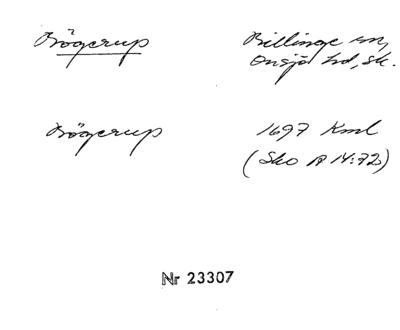 Bögerup Billinge sn,
Onsjö hd, Sk.
Bögerup 1697 Kml
(Sko A 14:72)
Nr 23307